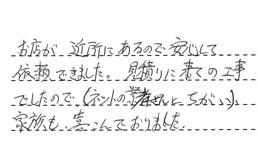 お店が、近所にあるので、安心して
依頼できました。見積りに来ての工事
でしたので、(ネットの業者さんと、ちがい、)
家族も、喜こんでおりました